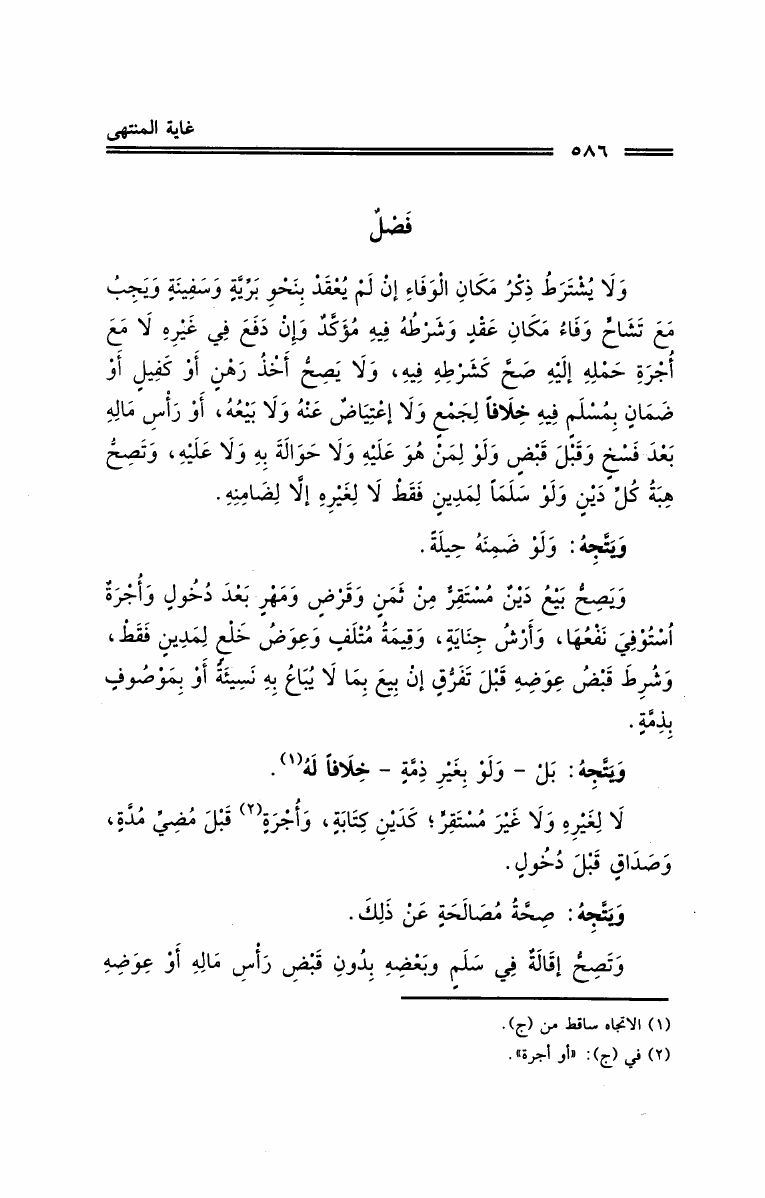 غاية المنتهى
٥٨٦
فَصْلٌ
وَلَا يُشْتَرَطُ ذِكْرُ مَكَانِ الْوَفَاءِ إنْ لَمْ يُعْقَدْ بِنَحْوِ بَرِّيَّةٍ وَسَفِينَةٍ وَيَجِبُ
مَعَ تَشَاحٍّ وَفَاءُ مَكَانِ عَقْدٍ وَشَرْطُهُ فِيهِ مُؤَكَّدٌ وَإِنْ دَفَعَ فِي غَيْرِهِ لَا مَعَ
أُجْرَةِ حَمْلِهِ إلَيْهِ صَحَّ كَشَرْطِهِ فِيهِ، وَلَا يَصِحُّ أَخْذُ رَهْنٍ أَوْ كَفِيلٍ أَوْ
ضَمَانٍ بِمُسْلَمٍ فِيهِ خِلَافاً لِجَمْعٍ وَلَا إعْتِيَاضٌ عَنْهُ وَلَا بَيْعُهُ، أَوْ رَأْسِ مَالِهِ
بَعْدَ فَسْخٍ وَقَبْلَ قَبْضٍ وَلَوْ لِمَنْ هُوَ عَلَيْهِ وَلَا حَوَالَةَ بِهِ وَلَا عَلَيْهِ، وَتَصِحُّ
هِبَةُ كُلِّ دَيْنٍ وَلَوْ سَلَمَاً لِمَدِينٍ فَقَطْ لَا لِغَيْرِهِ إلَّا لِضَامِنِهِ.
وَيَتَّجِهُ: وَلَوْ ضَمِنَهُ حِيلَةً.
وَيَصِحُّ بَيْعُ دَيْنٌ مُسْتَقِرٌّ مِنْ ثَمَنٍ وَقَرْضٍ وَمَهْرٍ بَعْدَ دُخُولٍ وَأُجْرَةٌ
اُسْتُوْفِيَ نَفْعُهَا، وَأَرْشُ جِنَايَةٍ، وَقِيمَةُ مُتْلَفٍ وَعِوَضُ خَلْعٍ لِمَدِينٍ فَقَطْ،
وَشُرِطَ قَبْضُ عِوَضِهِ قَبْلَ تَفَرُّقٍ إنْ بِيعَ بِمَا لَا يُبَاعُ بِهِ نَسِيئَةً أَوْ بِمَوْصُوفٍ
بِذِمَّةٍ.
وَيَتَّجِهُ: بَلْ - وَلَوْ بِغَيْرِ ذِمَّةٍ - خِلَافاً لَهُ(١).
لَا لِغَيْرِهِ وَلَا غَيْرَ مُسْتَقِرٍّ؛ كَدَيْنِ كِتَابَةٍ، وَأُجْرَةٍ(٢) قَبْلَ مُضِيِّ مُدَّةٍ،
وَصَدَاقٍ قَبْلَ دُخُولٍ.
وَيَتَّجِهُ: صِحَّةُ مُصَالَحَةٍ عَنْ ذَلِكَ.
وَتَصِحُّ إقَالَةٌ فِي سَلَمٍ وبَعْضِهِ بِدُونِ قَبْضِ رَأْسِ مَالِهِ أَوْ عِوَضِهِ
(١) الاتجاه ساقط من (ج).
(٢) في (ج): «أو أجرة».